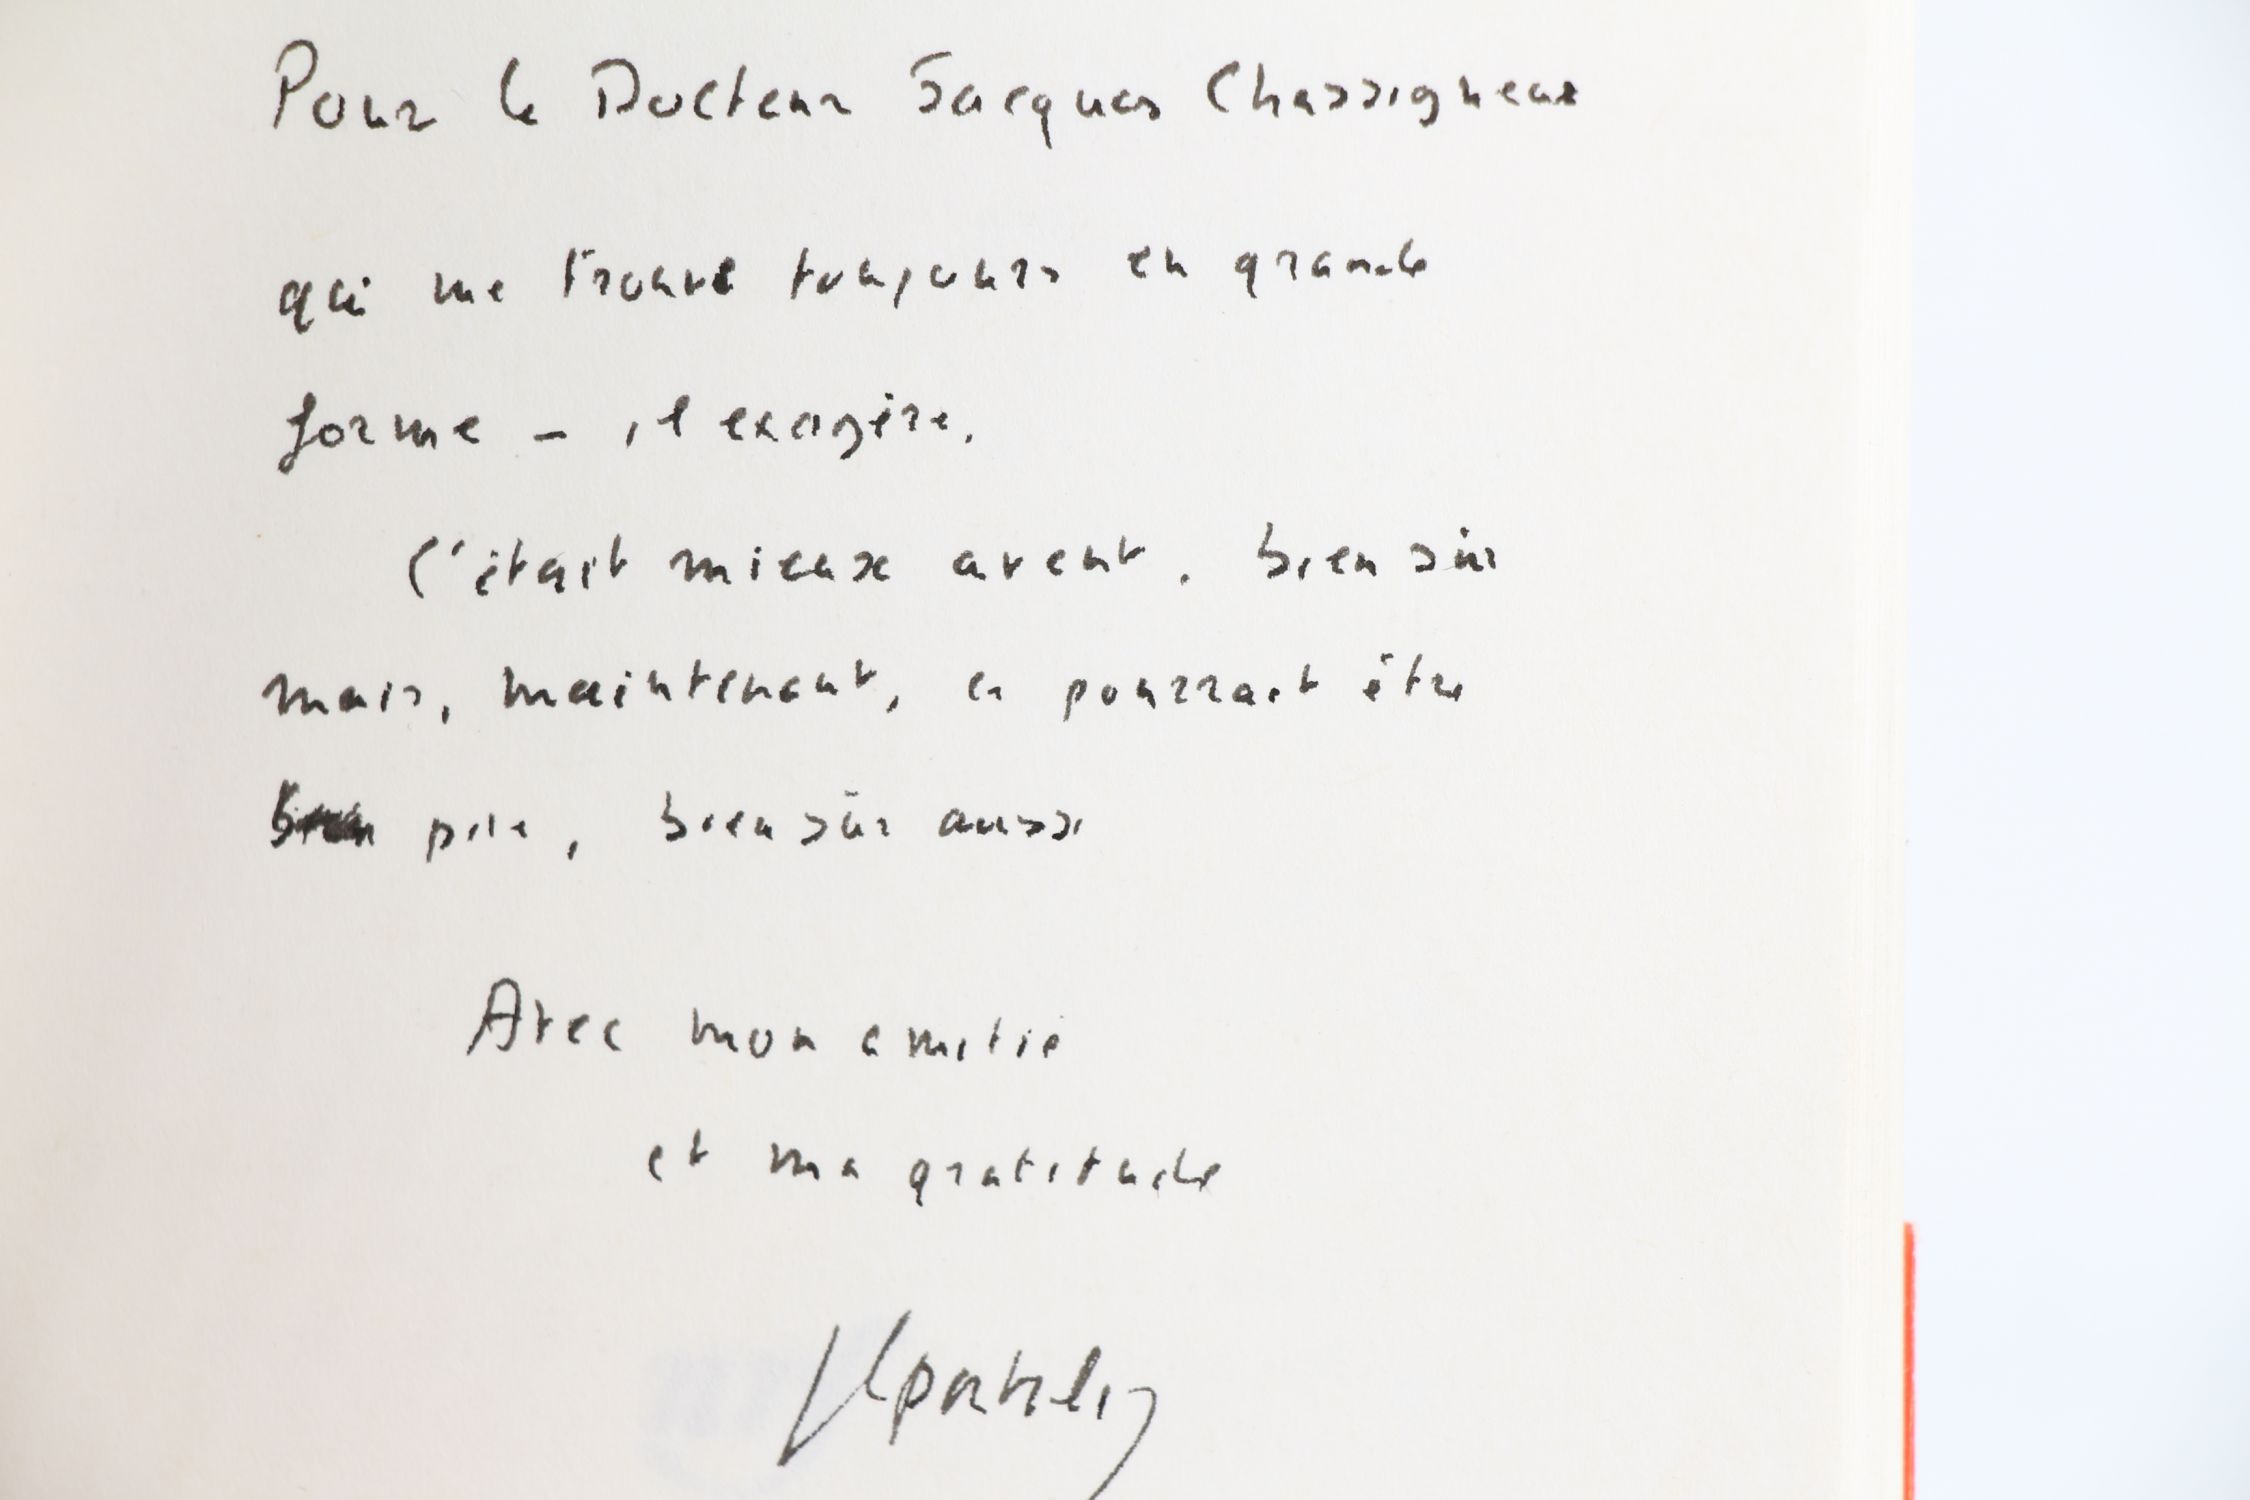 Pour le Docteur Jacques Chassigneux
qui me trouve toujours en grande
forme - il exagère.
C'était mieux avant, bien sûr
mais, maintenant, ça pourrait être
pire, bien sûr aussi
Avec mon amitié
et ma gratitude